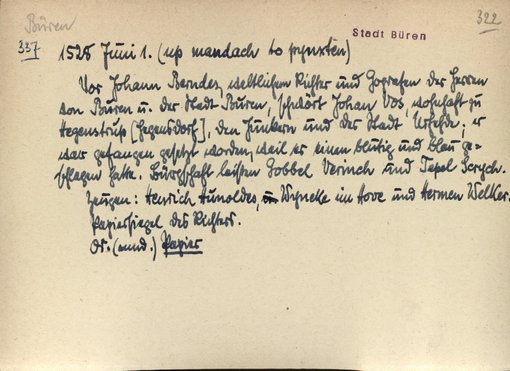 Büren
322
Stadt Büren
337
1528 Juni 1. (up mandach to pynxten)
Vor Johann Berndes, weltlichem Richter und Gografen der Herren
von Büren u. der Stadt Büren, schwört Johan Vos wohnhaft zu
Hegenstrup [Hegensdorf], den Junkern und der Stadt Urfehde; er
war gefangen gesetzt worden, weil er einen blutig und blau ge-
schlagen hatte. Bürgschaft leisten Gobbel Verinch und Tepel
Zeugen: Henrich Hunoldes, Wyneke im Hove und Hermen Welker.
Papiersiegel des Richters.
Or. (nnd.) Papier